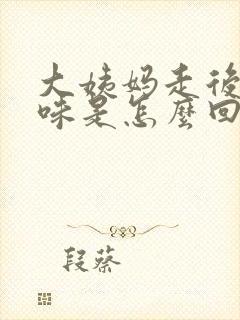 大姨妈走後
味是怎麼回
段蔡